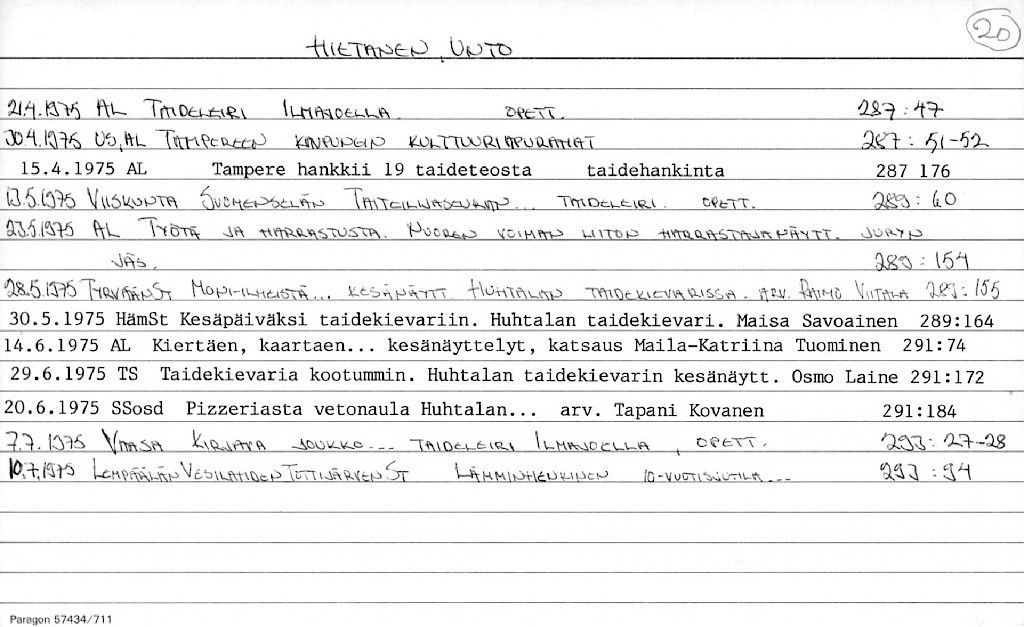 20
HIETANEN, UNTO
21.4.1975 AL TAIDELEIRI ILMAJOELLA. OPETT. 287:47
30.4.1975 US, AL TAMPEREEN KAUPUNGIN KULTTUURIAPURAHAT 287:51-52
15.4.1975 AL Tampere hankkii 19 taideteosta taidehankinta 287 176
13.5.1975 VIISKUNTA SUOMENSELÄN TAITEILIJASEURAN... TAIDELEIRI. OPETT. 289:60
23.5.1975 AL TYÖTÄ JA HARRASTUSTA. NUOREN VOIMAN LIITON HARRASTAJANÄYTT. JURYN
JÄS. 289:154
28.5.1975 TYRVÄÄNST MONI-ILMEISTÄ... KESÄNÄYTT. HUHTALAN TAIDEKIEVARISSA. ARV. RAIMO VIITALA 289:155
30.5.1975 HämSt Kesäpäiväksi taidekievariin. Huhtalan taidekievari. Maisa Savoainen 289:164
14.6.1975 AL Kiertäen, kaartaen... kesänäyttelyt, katsaus Maila-Katriina Tuominen 291:74
29.6.1975 TS Taidekievaria kootummin. Huhtalan taidekievarin kesänäytt. Osmo Laine 291:172
20.6.1975 SSosd Pizzeriasta vetonaula Huhtalan... arv. Tapani Kovanen 291:184
7.7.1975 VAASA KIRJAVA JOUKKO... TAIDELEIRI ILMAJOELLA, OPETT. 293:27-28
10.7.1975 LEMPÄÄLÄN VESILAHDEN TOTTIJÄRVEN ST LÄMMINHENKINEN 10-VUOTISJUHLA... 293:94
Paragon 57434/711